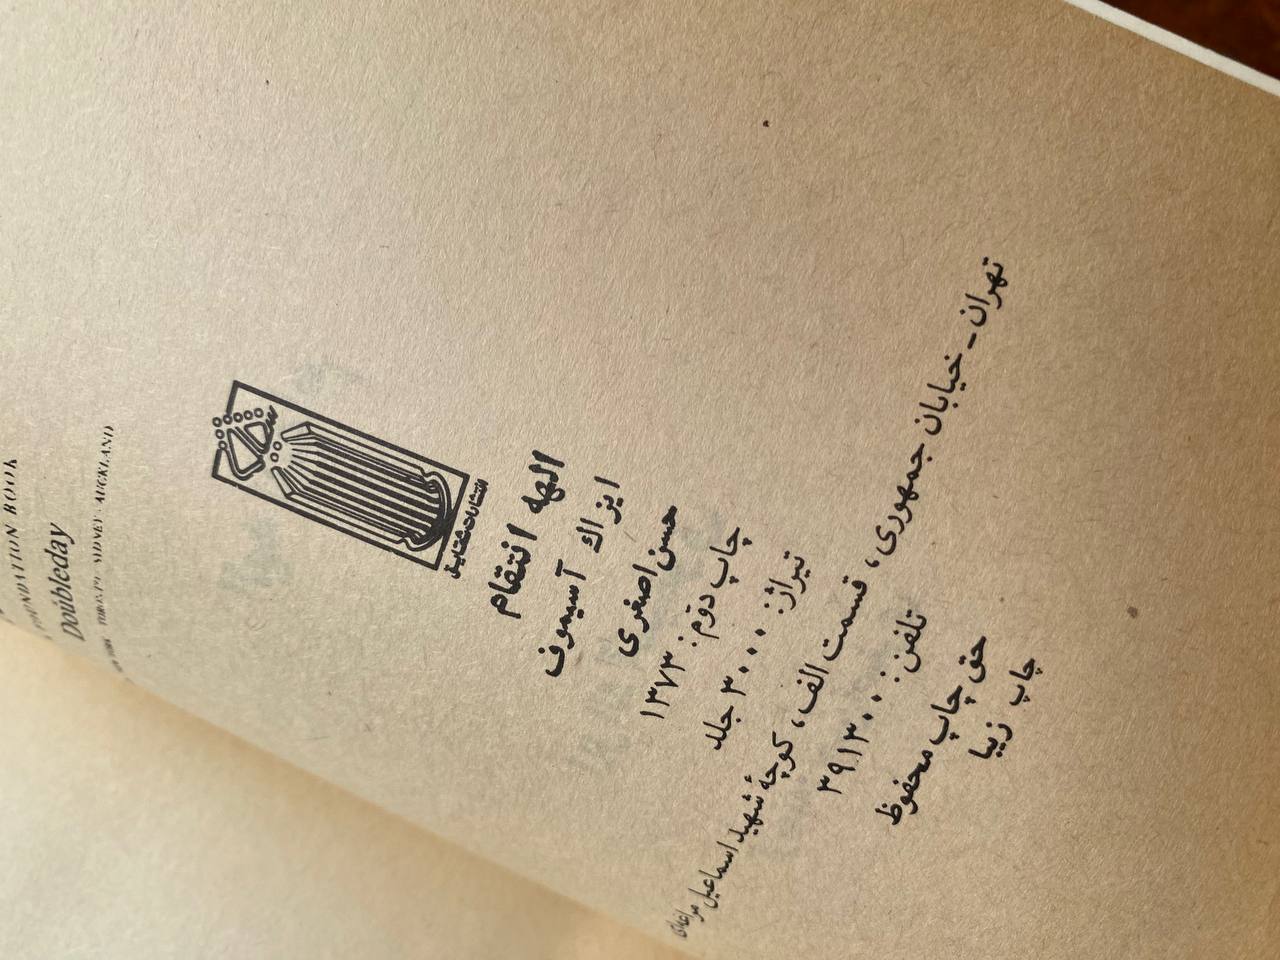 FOUNDATION BOOK
Doubleday
TORONTO SYDNEY AUCKLAND
انتشارات شقایق
الهه انتقام
ایزاك آسیموف
حسن اصغری
چاپ دوّم: ۱۳۷۳
تیراژ: ۳۰۰۰ جلد
تهران ـ خیابان جمهوری، قسمت الف، کوچهٔ شهید اسماعیل مراغه‌ای
تلفن: ۳۹۱۳۰۰
حق چاپ محفوظ
چاپ زیبا